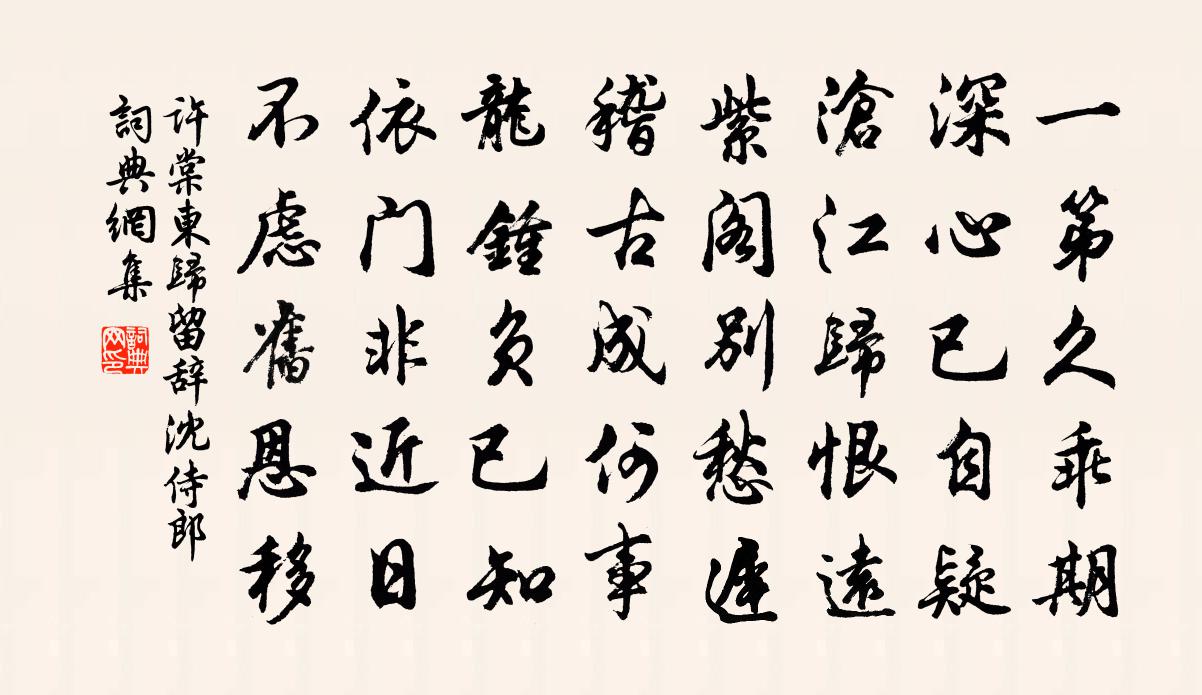 一第久乖期
深心已自疑
滄江歸恨遠
紫閣別愁遲
稽古成何事
龍鍾負已知
依门非近日
不慮舊恩移
许棠東歸留辞沈侍郎
詞典網集
詞典网印